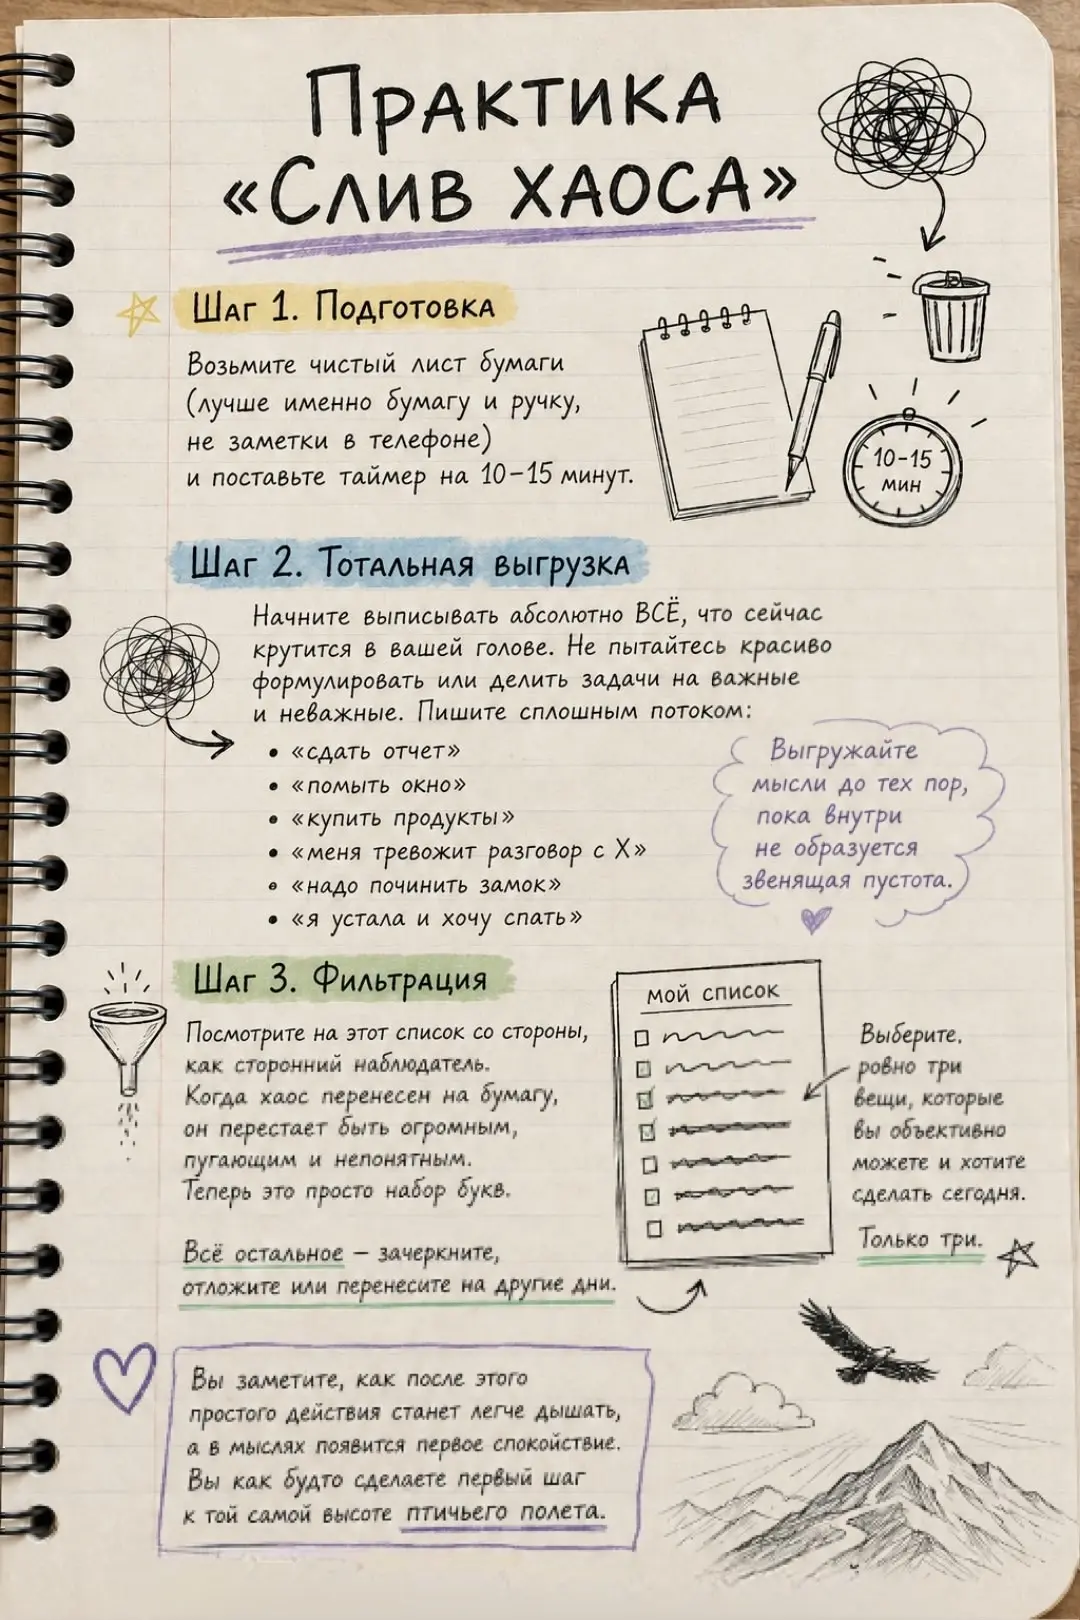 Практика
«Слив хаоса»
Шаг 1. Подготовка
Возьмите чистый лист бумаги
(лучше именно бумагу и ручку,
не заметки в телефоне)
и поставьте таймер на 10–15 минут.
10–15
мин
Шаг 2. Тотальная выгрузка
Начните выписывать абсолютно ВСЁ, что сейчас
крутится в вашей голове. Не пытайтесь красиво
формулировать или делить задачи на важные
и неважные. Пишите сплошным потоком:
• «сдать отчет»
• «помыть окно»
• «купить продукты»
• «меня тревожит разговор с Х»
• «надо починить замок»
• «я устала и хочу спать»
Выгружайте
мысли до тех пор,
пока внутри
не образуется
звенящая пустота.
Шаг 3. Фильтрация
Посмотрите на этот список со стороны,
как сторонний наблюдатель.
Когда хаос перенесен на бумагу,
он перестает быть огромным,
пугающим и непонятным.
Теперь это просто набор букв.
Всё остальное – зачеркните,
отложите или перенесите на другие дни.
мой список
Выберите.
ровно три
вещи, которые
вы объективно
можете и хотите
сделать сегодня.
Только три.
Вы заметите, как после этого
простого действия станет легче дышать,
а в мыслях появится первое спокойствие.
Вы как будто сделаете первый шаг
к той самой высоте птичьего полета.